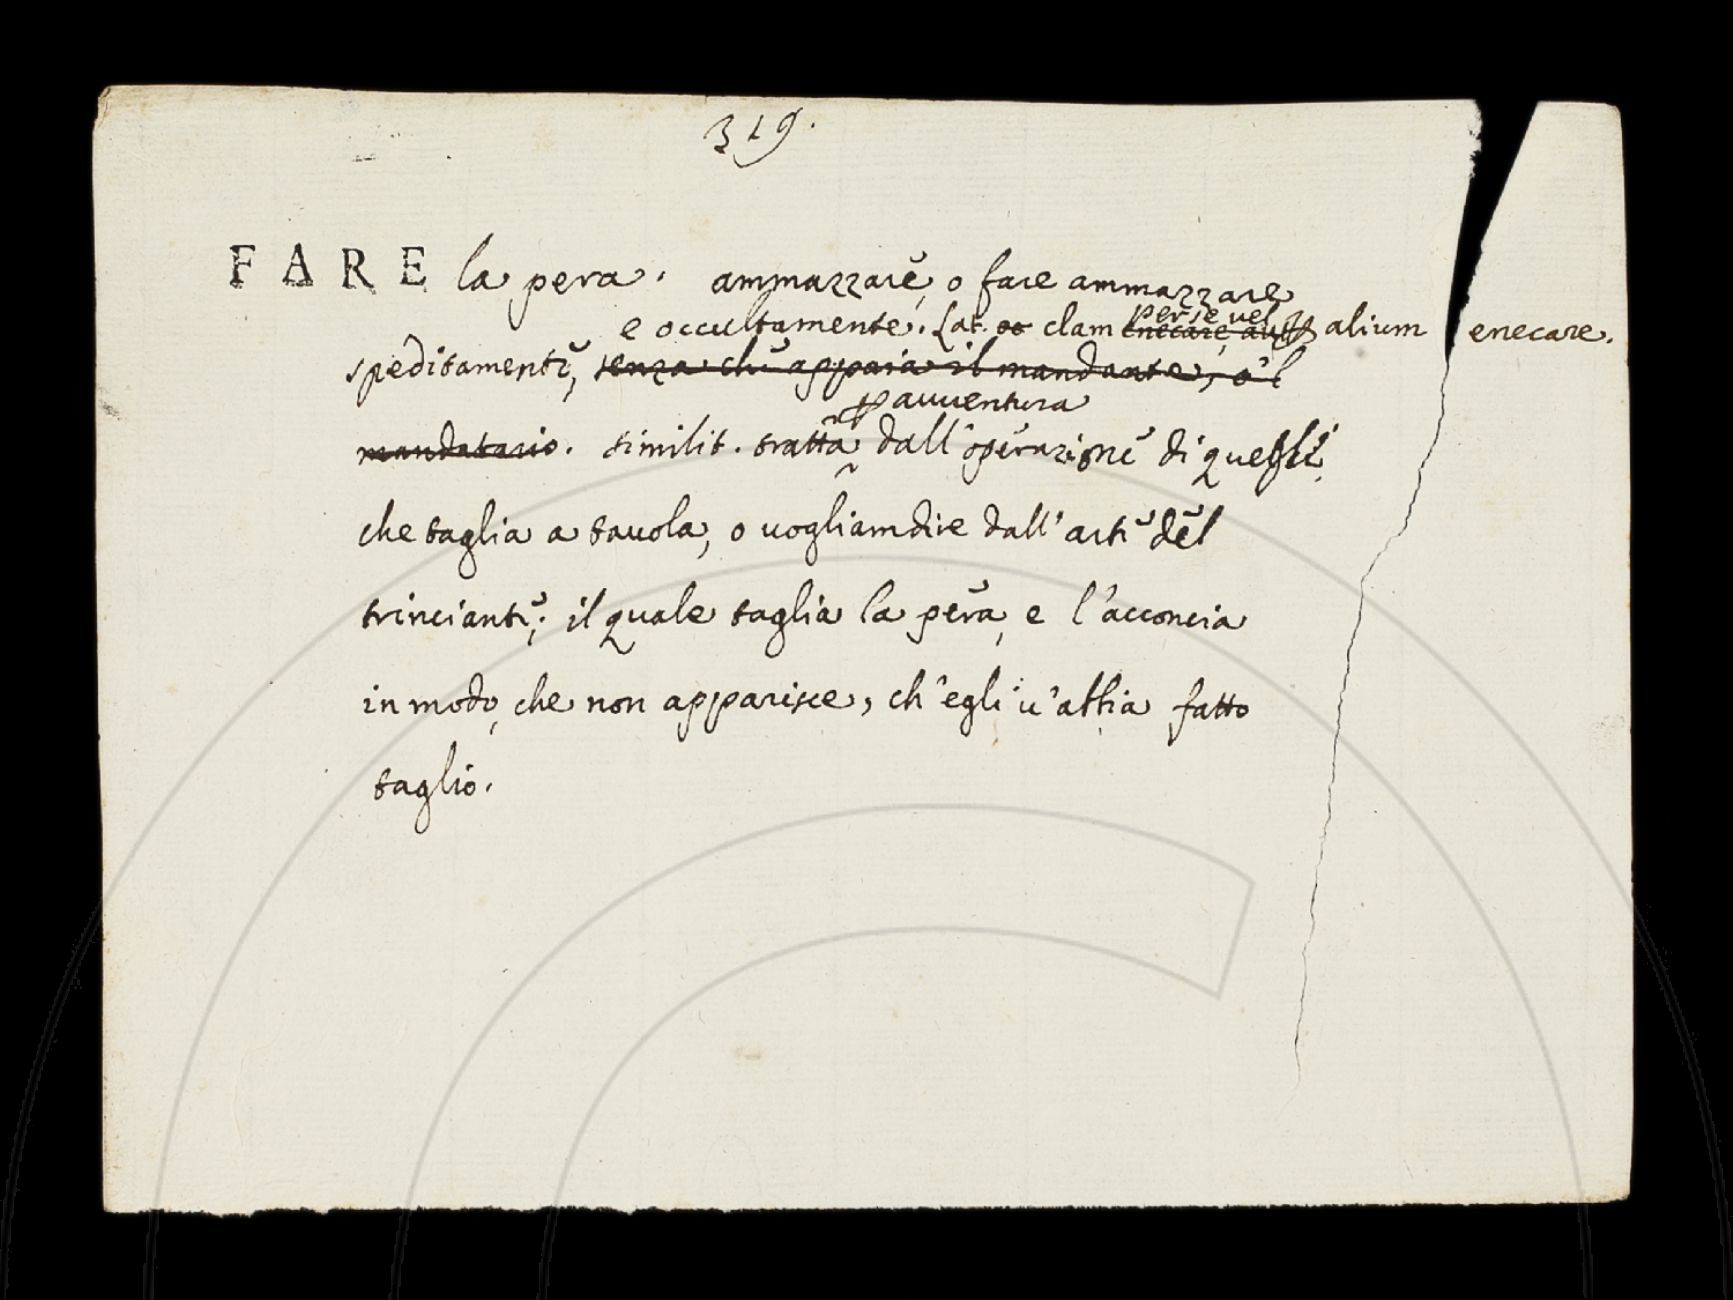 319.
FARE la pera. ammazzare, o fare ammazzare
per se vel
e occultamente. Lat. clam enecare, alium enecare.
speditamente, senza che appaia il mandante, o 'l
avventura
mandatario. similit. tratta dall'operazione di quegli,
che taglia a tavola, o vogliam dire dall'arte del
trinciante; il quale taglia la pera, e l'acconcia
in modo, che non apparisce, ch'egli v'abbia fatto
taglio.